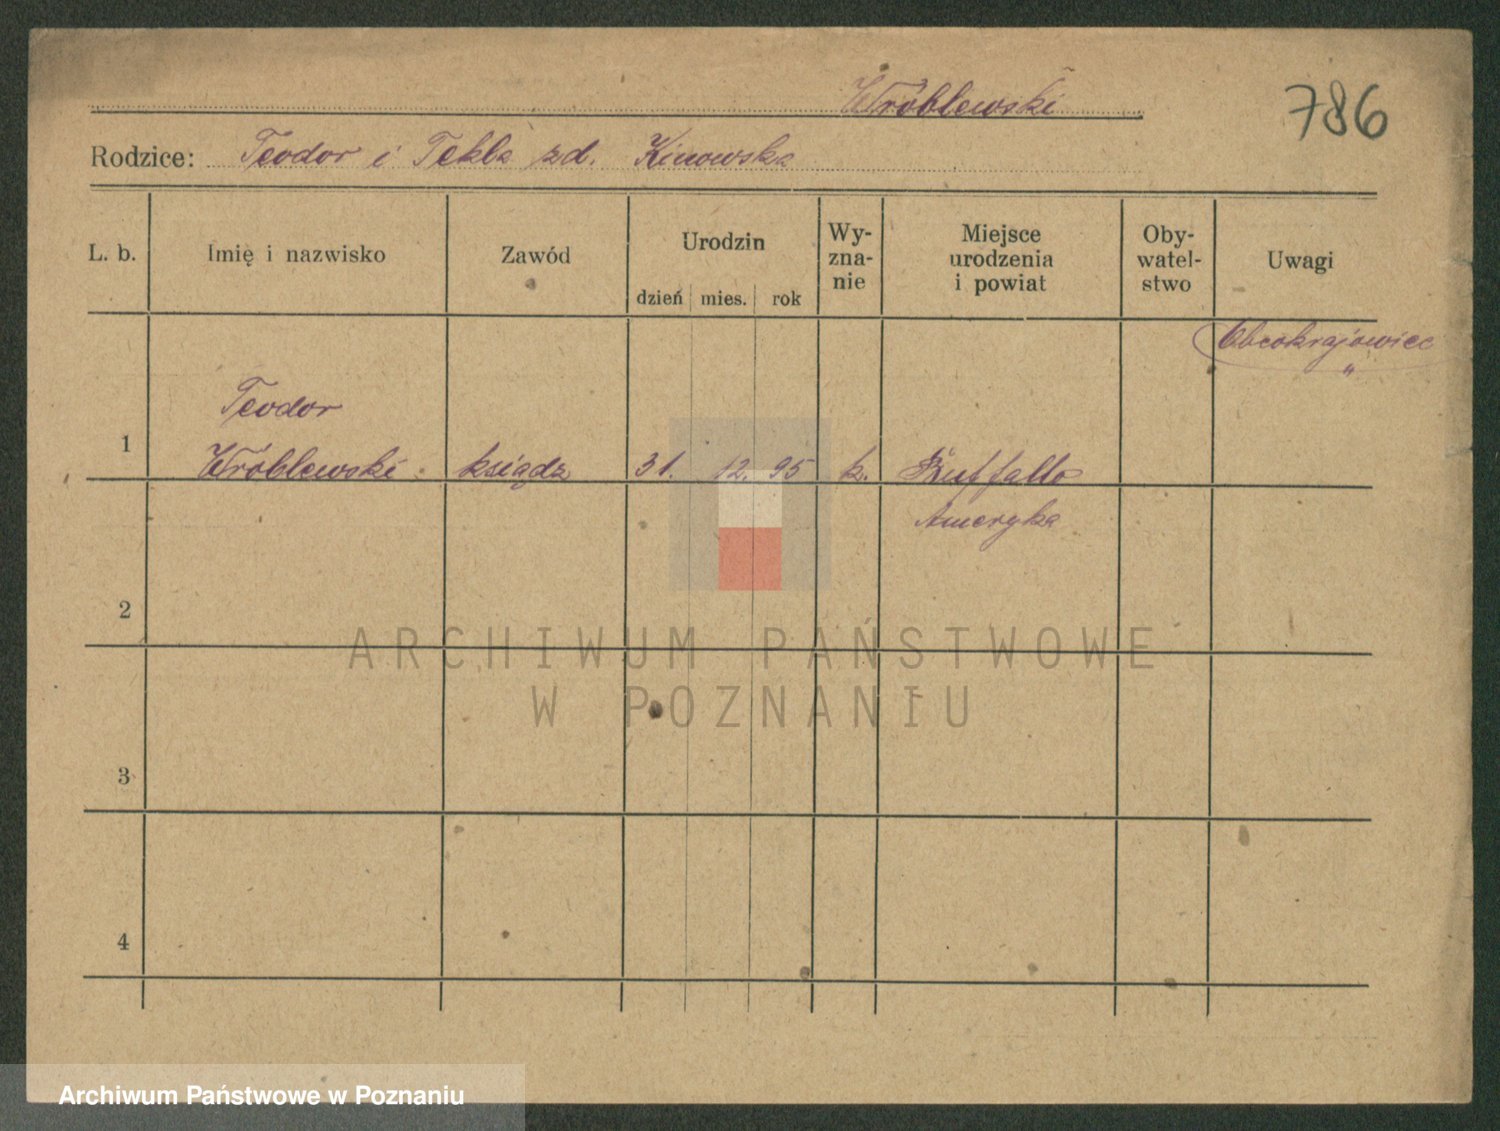 Wróblewski
786
Rodzice: Teodor i Tekla zd. Kinowska
L. b.
Imię i nazwisko
Zawód
Urodzin
dzień
mies.
rok
Wy-
zna-
nie
Miejsce
urodzenia
i powiat
Oby-
watel-
stwo
Uwagi
Obcokrajowiec
"
1
Teodor
Wróblewski
ksiądz
31. 12. 95
k.
Buffallo
Ameryka
2
ARCHIWUM PAŃSTWOWE
W POZNANIU
3
4
Archiwum Państwowe w Poznaniu